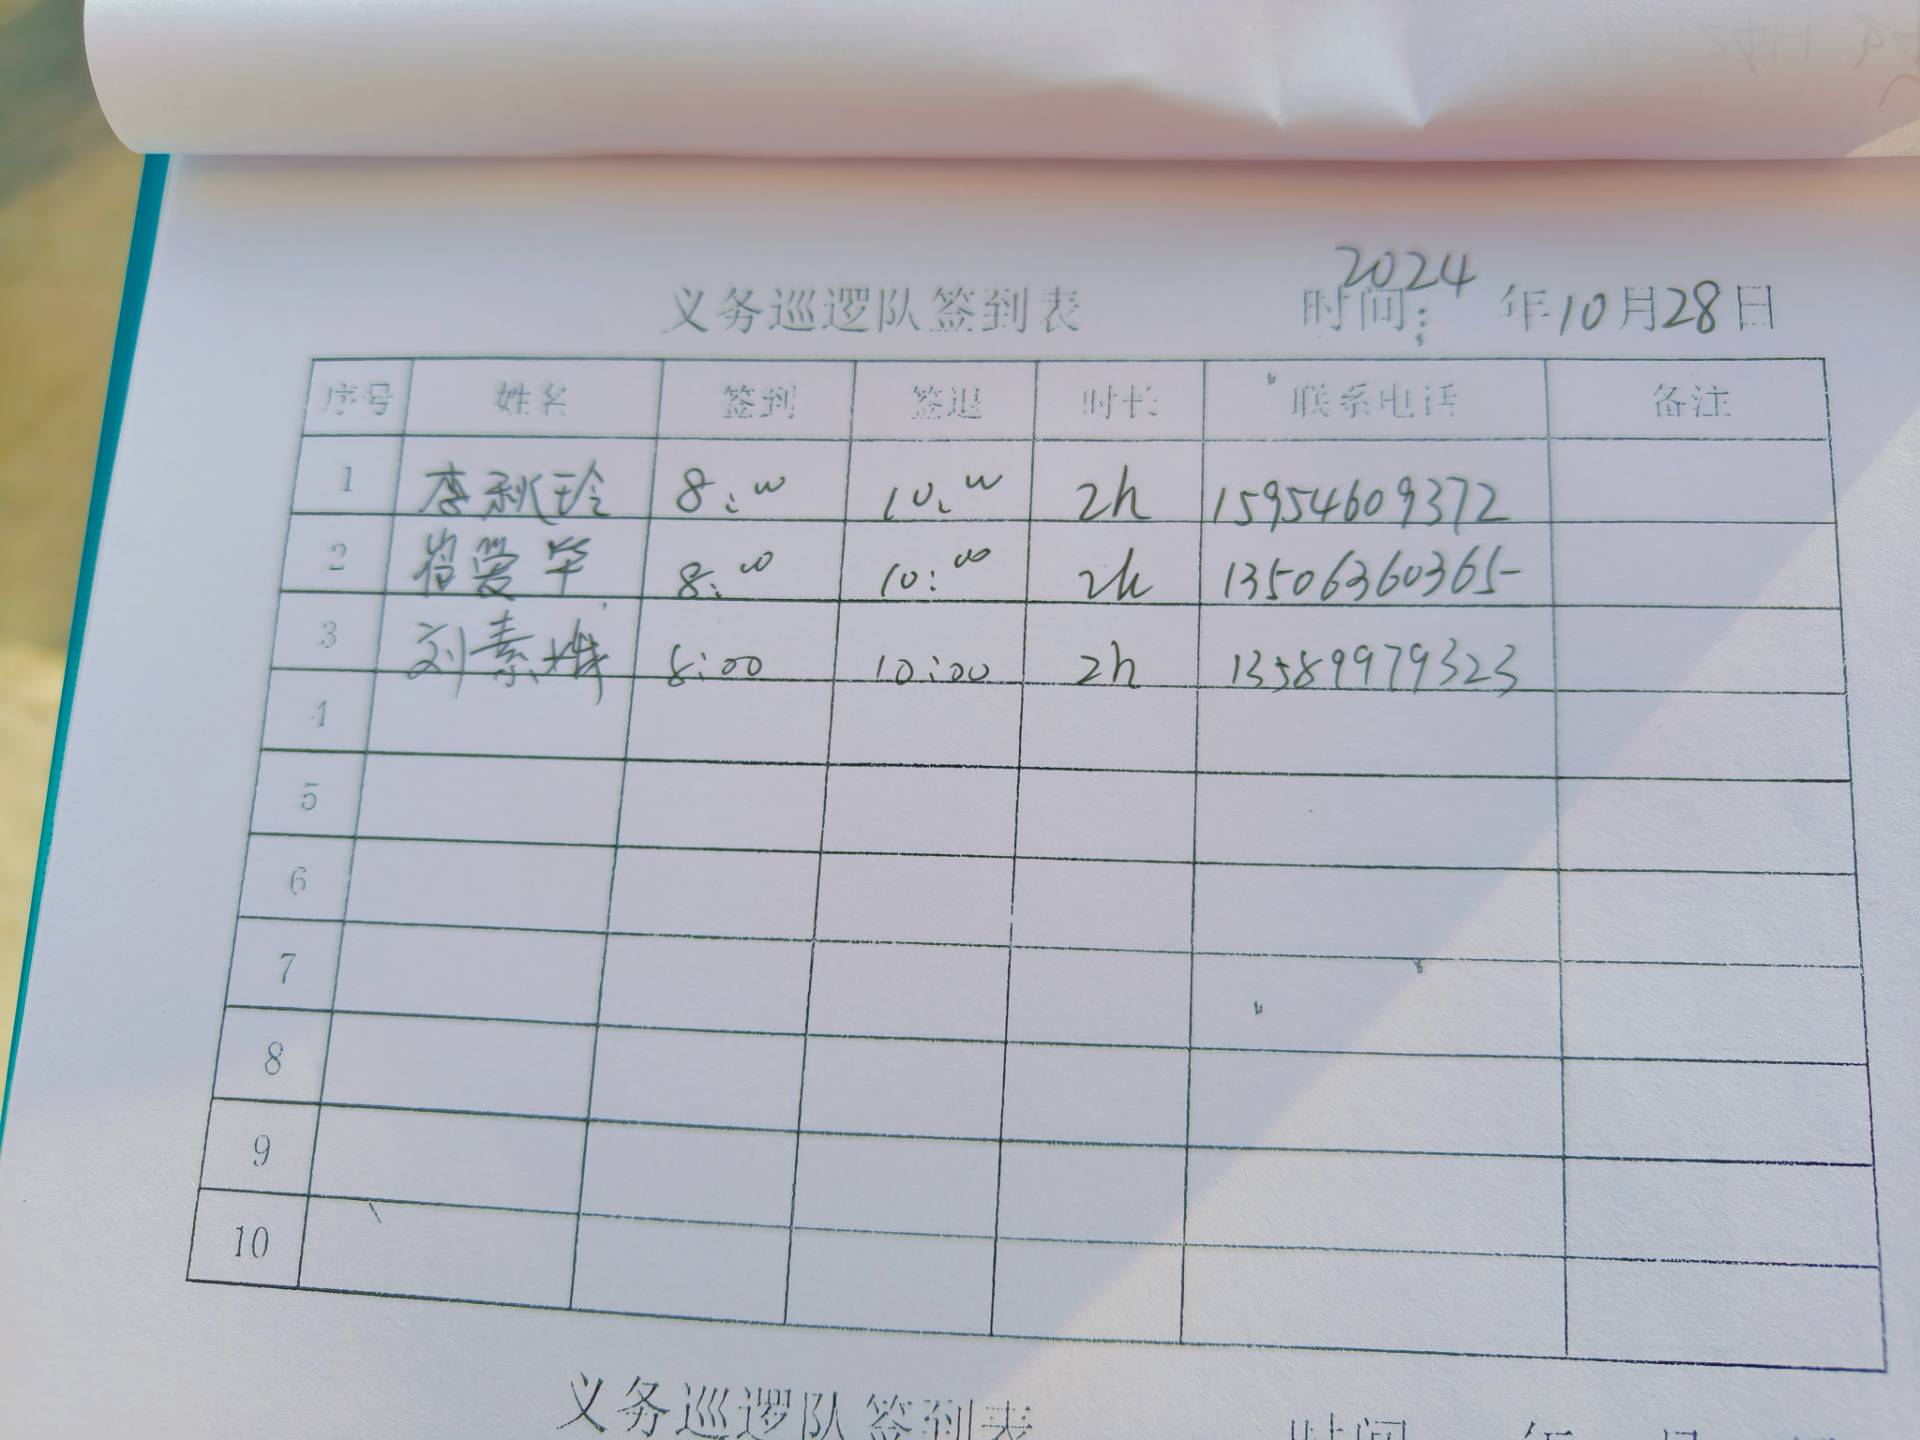 义务巡逻队签到表 时间: 2024 年 10 月 28 日
序号 姓名 签到 签退 时长 联系电话 备注
1 李秋玲 8:00 10:00 2h 15954609372
2 崔爱华 8:00 10:00 2h 13506360365
3 刘素娥 8:00 10:00 2h 13589979323
4
5
6
7
8
9
10
义务巡逻队签到表 时间 年 月